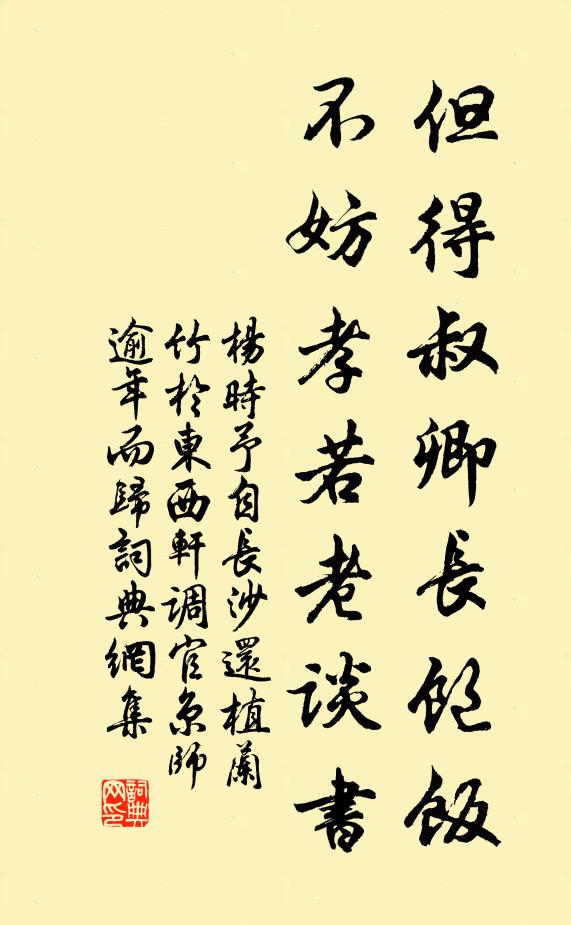 但得叔卿長飽飯
不妨孝若老談書
楊時予自長沙還植蘭
竹於東西軒調官京師
逾年而歸詞典網集
詞典網印